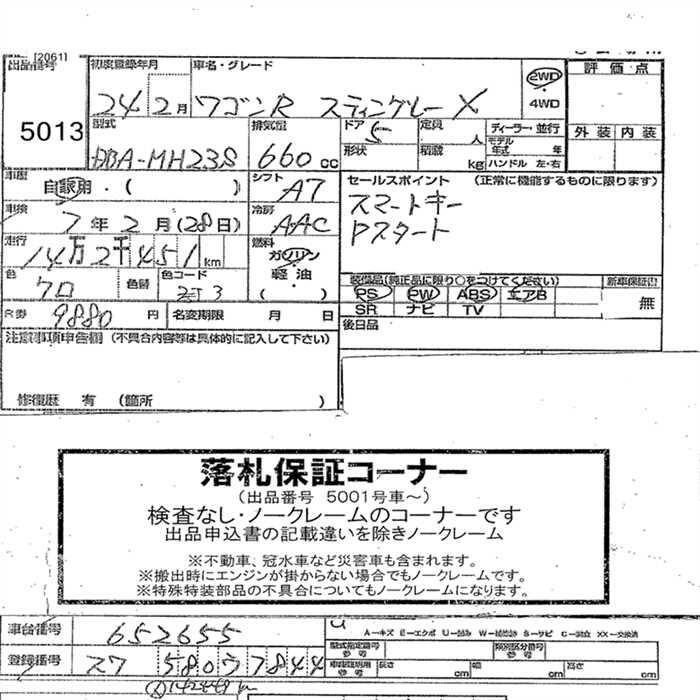 [2061]
出品番号 5013
初度登録年月 24 2月
車名・グレード ワゴンR スティングレー X
2WD 4WD
評価点
外装 内装
型式 DBA-MH23S
排気量 660 cc
ドア 5
形状
定員 人
積載 kg
ディーラー・並行
モデル年式 年
ハンドル 左・右
車歴 自家用・( )
シフト A7
セールスポイント (正常に機能するものに限ります)
スマートキー
Pスタート
車検 7年2月(28日)
冷房 AAC
走行 14万2千451km
燃料 ガソリン 軽油 ( )
色 クロ 色替 色コード ZJ3
装備品(純正品に限り○をつけてください)
PS PW ABS エアB
SR ナビ TV
新車保証書 無
R券 9880円
名変期限 月 日
後日品
注意事項申告欄 (不具合内容等は具体的に記入して下さい)
修復歴 有 (箇所 )
落札保証コーナー
(出品番号 5001号車~)
検査なし・ノークレームのコーナーです
出品申込書の記載違いを除きノークレーム
※不動車、冠水車など災害車も含まれます。
※搬出時にエンジンが掛からない場合でもノークレームです。
※特殊特装部品の不具合についてもノークレームになります。
車台番号 652655
A-キズ E-エクボ U-凹み W-補修跡 S-サビ C-腐食 XX-交換済
型式指定番号 参考
類別区分番号 参考
登録番号 580 ワ 7844
長さ cm 幅 cm 高さ cm